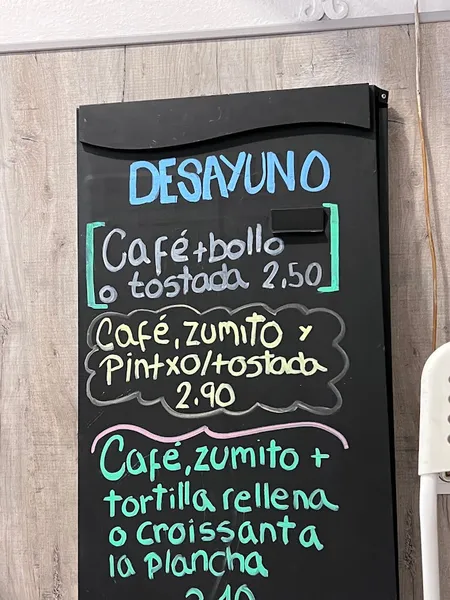 DESAYUNO
Café+bollo
o tostada 2,50
Café, zumito y
pintxo/tostada
2.90
Café, zumito +
tortilla rellena
o croissant a
la plancha